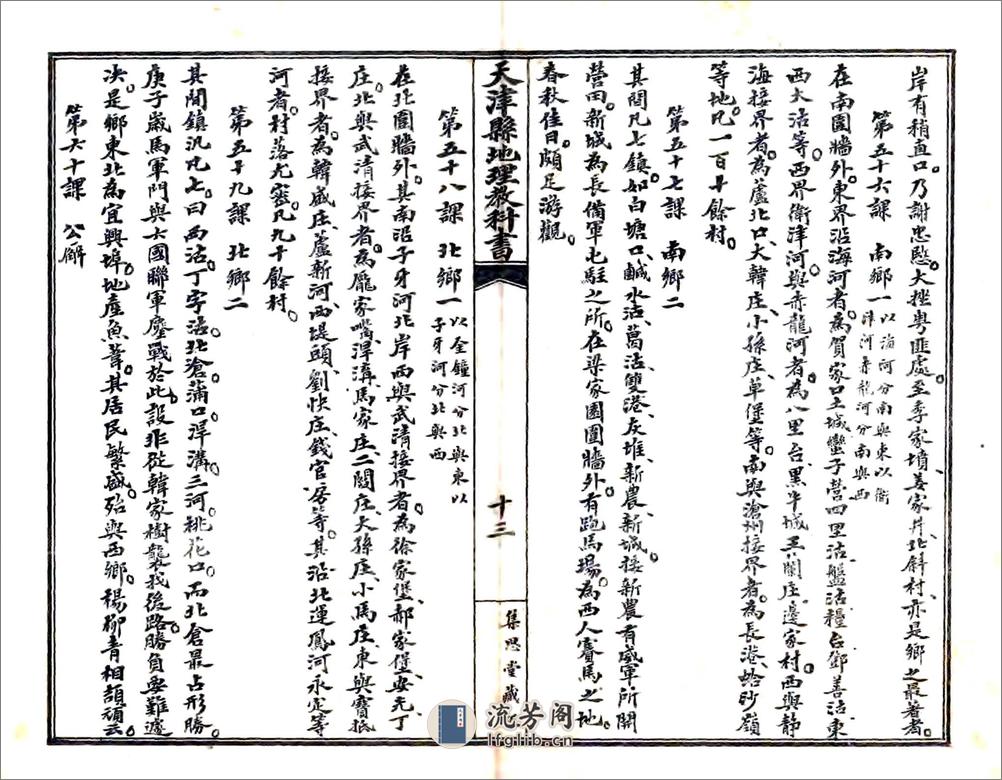 岸有稍直口。乃謝忠愍。大挫粵匪處。至李家墳、姜家井、北斜村、亦是鄉之最著者。
第五十六課　南鄉一　以海河分南與東以衛津河赤龍河分南與西
在南圍牆外。東界沿海河者。為賀家口、土城、蠻子營、四里沽、盤沽、糧台、鄧善沽、東
西大沽等。西界衛津河與赤龍河者。為八里台、黑牛城、王蘭庄、邊家村。西與靜
海接界者。為蘆北口、大韓庄、小孫庄、草堡等。南與滄州接界者。為長港、蛤蜊嶺
等地。凡一百卄餘村。
第五十七課　南鄉二
其間凡七鎮。如白塘口、鹹水沽、葛沽、雙港、灰堆、新農、新城。接新農有盛軍所開
營田。新城為長備軍屯駐之所。在梁家園圍牆外。有跑馬場。為西人賽馬之地。
春秋佳日。頗足游觀。
天津縣地理教科書
十三
集思堂藏
第五十八課　北鄉一　以金鐘河分北與東以子牙河分北與西
在北圍牆外。其南沿子牙河北岸西與武清接界者。為徐家堡、郝家堡、安光、丁
庄。北與武清接界者。為龐家嘴、淀溝、馬家庄、二閻庄、大孫庄、小馬庄。東與寶抵
接界者。為韓盛庄、蘆新河、西堤頭、劉快庄、錢官房等。其沿北運鳳河永定等
河者。村落尤密。凡九十餘村。
第五十九課　北鄉二
其間鎮汛凡七。曰西沽、丁字沽、北滄、蒲口、淀溝、三河、桃花口。而北倉最占形勝。
庚子歲馬軍門與六國聯軍鏖戰於此。設非從韓家樹襲我後路。勝負要難遽
决。是鄉東北為宜興埠。地產魚葦。其居民繁盛。殆與西鄉。楊柳青相頡頏云。
第六十課　公廨
流芳阁
lfglib.cn